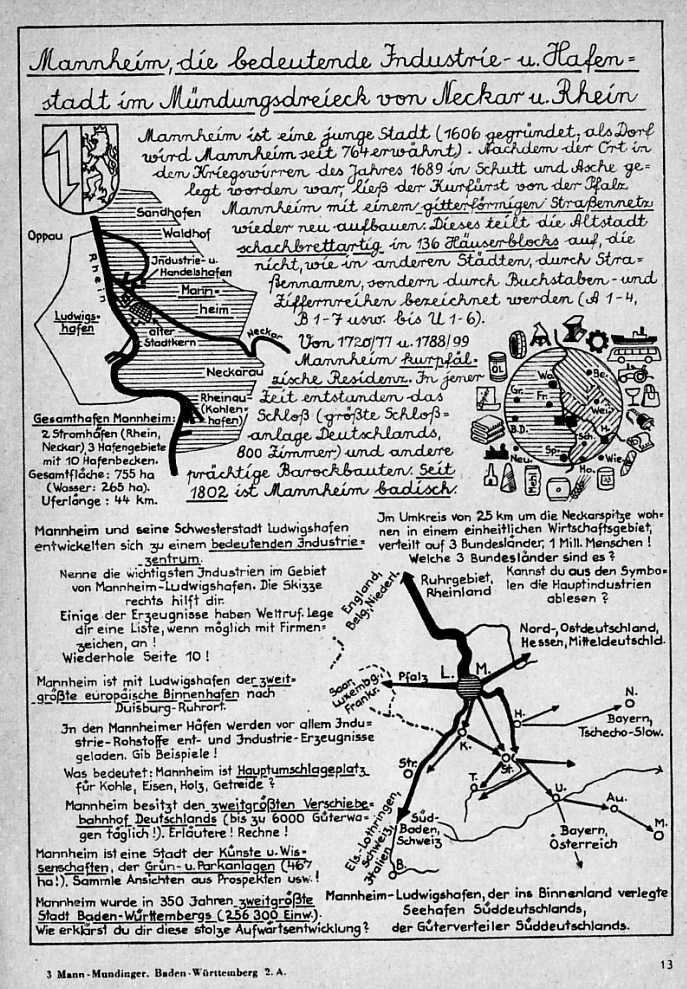 Mannheim, die bedeutende Industrie- u. Hafen=
stadt im Mündungsdreieck von Neckar u. Rhein
Mannheim ist eine junge Stadt (1606 gegründet, als Dorf
wird Mannheim seit 764 erwähnt). Nachdem der Ort in
den Kriegswirren des Jahres 1689 in Schutt und Asche ge-
legt worden war, ließ der Kurfürst von der Pfalz
Mannheim mit einem gitterförmigen Straßennetz
wieder neu aufbauen. Dieses teilt die Altstadt
schachbrettartig in 136 Häuserblocks auf, die
nicht, wie in anderen Städten, durch Stra-
ßennamen, sondern durch Buchstaben- und
Ziffernreihen bezeichnet werden (A 1-4,
B 1-7 usw. bis U 1-6).
Von 1720/77 u. 1788/99
Mannheim kurpfäl-
zische Residenz. In jener
Zeit entstanden das
Schloß (größte Schloß=
anlage Deutschlands,
800 Zimmer) und andere
prächtige Barockbauten. Seit
1802 ist Mannheim badisch.
Sandhofen
Waldhof
Oppau
Rhein
Industrie- u.
Handelshafen
Mann-
heim
Ludwigs-
hafen
alter
Stadtkern
Neckar
Neckarau
Rheinau-
(Kohlen-
hafen)
Gesamthafen Mannheim:
2 Stromhäfen (Rhein,
Neckar) 3 Hafengebiete
mit 10 Hafenbecken.
Gesamtfläche: 755 ha
(Wasser: 265 ha).
Uferlänge: 44 km.
ÖL
Wo.
Be.
Gr.
Fr.
Wei.
B.D.
H.
Sch.
Neu.
Sp.
Wie.
Ho.
Mannheim und seine Schwesterstadt Ludwigshafen
entwickelten sich zu einem bedeutenden Industrie=
zentrum.
Nenne die wichtigsten Industrien im Gebiet
von Mannheim-Ludwigshafen. Die Skizze
rechts hilft dir.
Einige der Erzeugnisse haben Weltruf. Lege
dir eine Liste, wenn möglich mit Firmen=
zeichen, an!
Wiederhole Seite 10!
Mannheim ist mit Ludwigshafen der zweit-
größte europäische Binnenhafen nach
Duisburg-Ruhrort.
In den Mannheimer Häfen werden vor allem Indu=
strie-Rohstoffe ent- und Industrie-Erzeugnisse
geladen. Gib Beispiele!
Was bedeutet: Mannheim ist Hauptumschlageplatz
für Kohle, Eisen, Holz, Getreide?
Mannheim besitzt den zweitgrößten Verschiebe-
bahnhof Deutschlands (bis zu 6000 Güterwa-
gen täglich!). Erläutere! Rechne!
Mannheim ist eine Stadt der Künste u. Wis-
senschaften, der Grün- u. Parkanlagen (467
ha!). Sammle Ansichten aus Prospekten usw.!
Mannheim wurde in 350 Jahren zweitgrößte
Stadt Baden-Württembergs (256 300 Einw.).
Wie erklärst du dir diese stolze Aufwärtsentwicklung?
Im Umkreis von 25 km um die Neckarspitze woh-
nen in einem einheitlichen Wirtschaftsgebiet,
verteilt auf 3 Bundesländer, 1 Mill. Menschen!
Welche 3 Bundesländer sind es?
Kannst du aus den Symbo-
len die Hauptindustrien
ablesen?
England,
Belg., Niederl.
Ruhrgebiet,
Rheinland
Nord-, Ostdeutschland,
Hessen, Mitteldeutschld.
L.
M.
Pfalz
Saar,
Luxembg.,
Frankr.
H.
N.
Bayern,
Tschecho-Slow.
K.
Str.
St.
T.
U.
Au.
M.
Els.-Lothringen,
Schweiz,
Italien
Süd-
Baden,
Schweiz
B.
Bayern,
Österreich
Mannheim-Ludwigshafen, der ins Binnenland verlegte
Seehafen Süddeutschlands,
der Güterverteiler Süddeutschlands.
3 Mann-Mundinger. Baden-Württemberg 2. A.
13